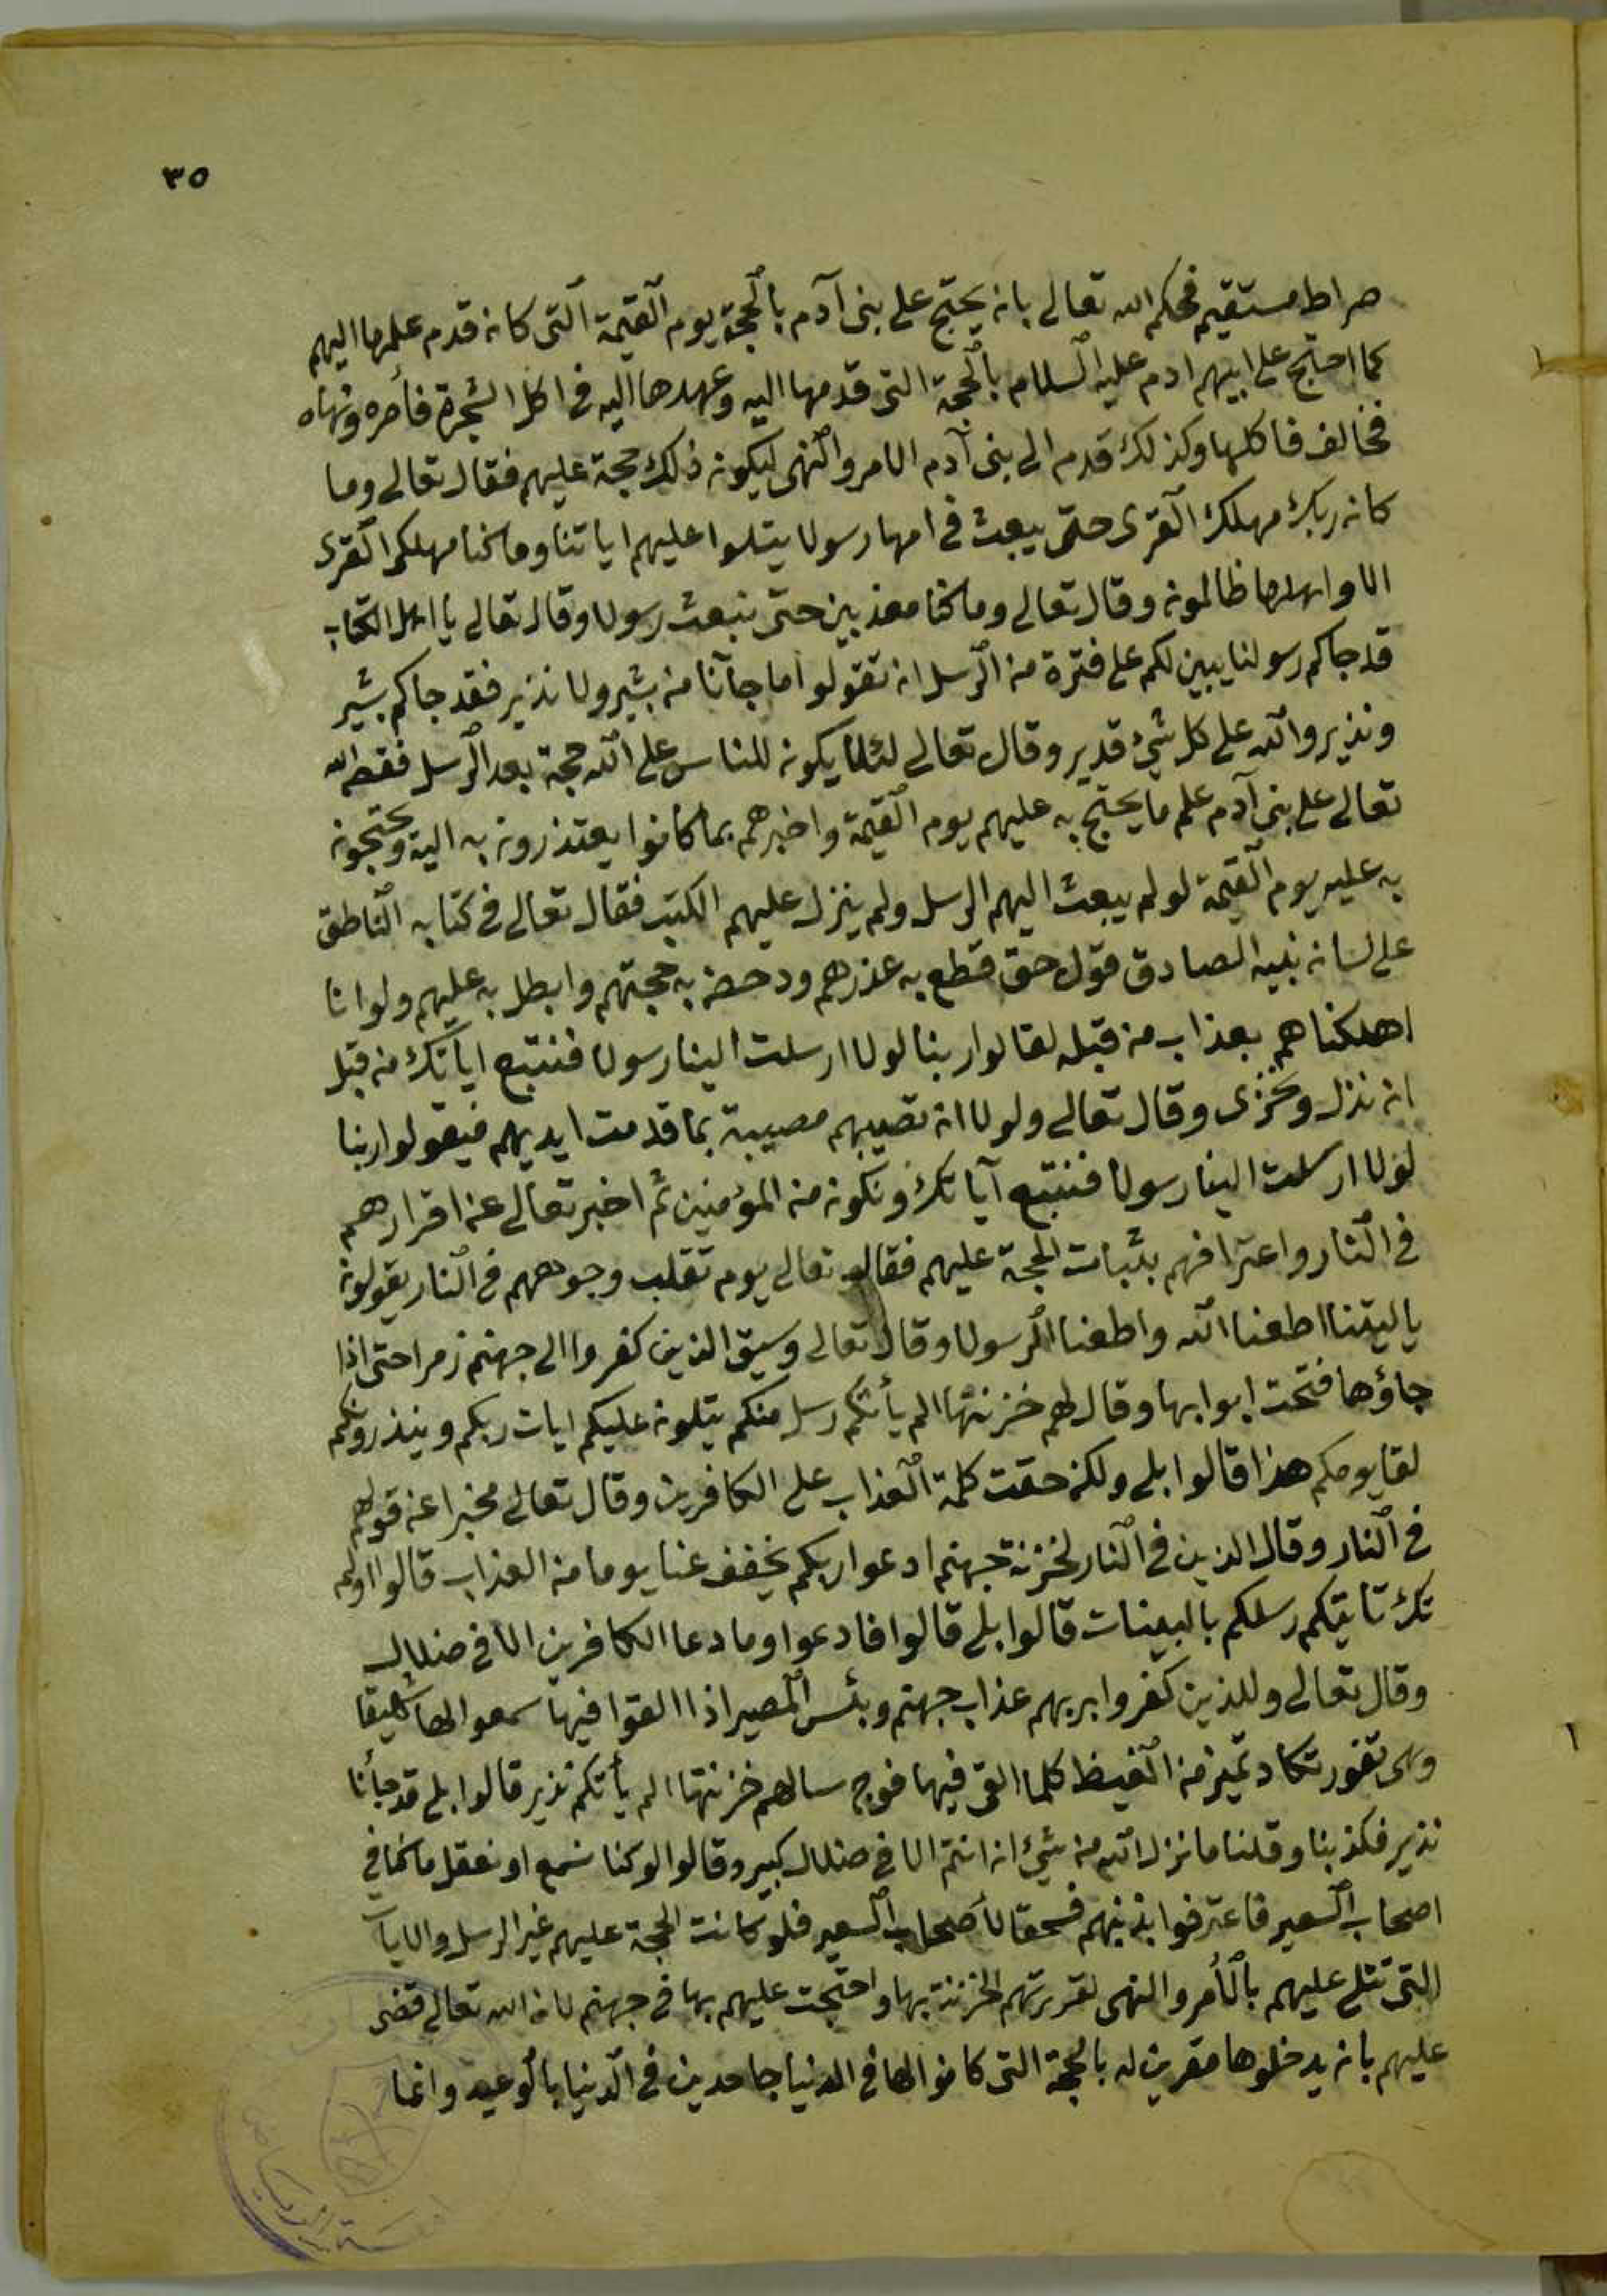 ٣٥
صراط مستقيم فحكم الله تعالى بان يحتج على بنى آدم بالحجة يوم القيمة التى كان قدم علمها اليهم
كما احتج على ابيهم ادم عليه السلام بالحجة التى قدمها اليه وعهدها اليه فى اكل الشجرة فأمره ونهاه
فخالف فاكلها وكذلك قدم الى بنى آدم الامر والنهى ليكون ذلك حجة عليهم فقال تعالى وما
كان ربك مهلك القرى حتى يبعث فى امها رسولا يتلوا عليهم اياتنا وما كنا مهلكى القرى
الا واهلها ظالمون وقال تعالى وما كنا معذبين حتى نبعث رسولا وقال تعالى يا اهل الكتاب
قد جاكم رسولنا يبين لكم على فترة من الرسل ان تقولوا ما جآنا من بشير ولا نذير فقد جاكم بشير
ونذير والله على كل شئ قدير وقال تعالى لئلا يكون للناس على الله حجة بعد الرسل فقطع الله
تعالى على بنى آدم علم ما يحتج به عليهم يوم القيمة واخبرهم بما كانوا يعتذرون به اليه ويحتجون
به عليه يوم القيمة لو لم يبعث اليهم الرسل ولم ينزل عليهم الكتب فقال تعالى فى كتابه الناطق
على لسان نبيه الصادق قول حق قطع به عذرهم ودحض به حجتهم وابطل به عليهم ولو انا
اهلكناهم بعذاب من قبله لقالوا ربنا لولا ارسلت الينا رسولا فنتبع اياتك من قبل
ان نذل ونخزى وقال تعالى ولولا ان تصيبهم مصيبة بما قدمت ايديهم فيقولوا ربنا
لولا ارسلت الينا رسولا فنتبع آياتك ونكون من المؤمنين ثم اخبر تعالى عن اقرارهم
فى النار واعترافهم بثبات الحجة عليهم فقال تعالى يوم تقلب وجوههم فى النار يقولون
يا ليتنا اطعنا الله واطعنا الرسولا وقال تعالى وسيق الذين كفروا الى جهنم زمرا حتى اذا
جاؤها فتحت ابوابها وقال لهم خزنتها الم يأتكم رسل منكم يتلون عليكم ايات ربكم وينذرونكم
لقا يومكم هذا قالوا بلى ولكن حقت كلمة العذاب على الكافرين وقال تعالى مخبرا عن قولهم
فى النار وقال الذين فى النار لخزنة جهنم ادعوا ربكم يخفف عنا يوما من العذاب قالوا اولم
تك تاتيكم رسلكم بالبينات قالوا بلى قالوا فادعوا وما دعا الكافرين الا فى ضلال
وقال تعالى وللذين كفروا بربهم عذاب جهنم وبئس المصير اذا القوا فيها سمعوا لها شهيقا
وهى تفور تكاد تميز من الغيظ كلما القى فيها فوج سالهم خزنتها الم يأتكم نذير قالوا بلى قد جأنا
نذير فكذبنا وقلنا ما نزل الله من شئ ان انتم الا فى ضلال كبير وقالوا لو كنا نسمع او نعقل ما كنا فى
اصحاب السعير فاعترفوا بذنبهم فسحقا لأصحاب السعير فلو كانت الحجة عليهم غير الرسل والايات
التى تتلى عليهم بالأمر والنهى لقررتهم الخزنة بها واحتجت عليهم بها فى جهنم لان الله تعالى قضى
عليهم بان يدخلوها مقرين له بالحجة التى كانوا لها فى الدنيا جاحدين فى الدنيا بالوعيد وانما